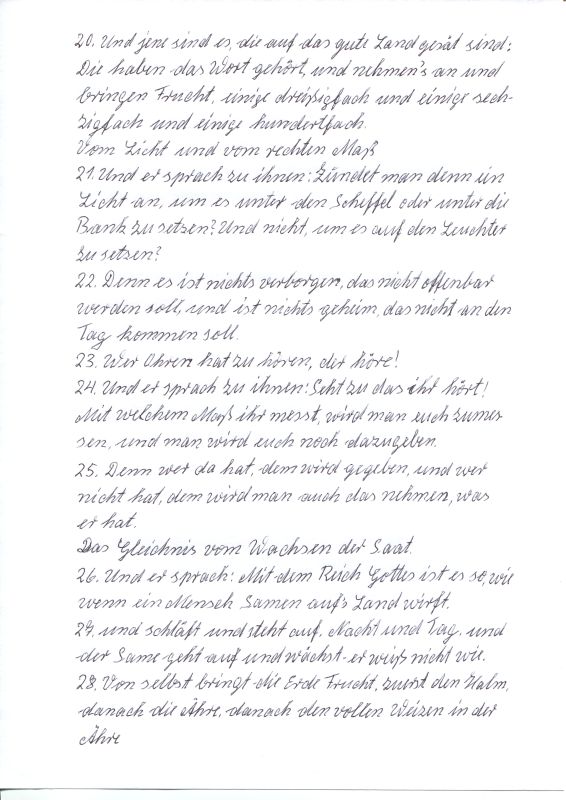 20. Und jene sind es, die auf das gute Land gesät sind:
Die haben das Wort gehört, und nehmen's an und
bringen Frucht, einige dreißigfach und einige sech-
zigfach und einige hundertfach.
Vom Licht und vom rechten Maß
21. Und er sprach zu ihnen: Zündet man denn ein
Licht an, um es unter den Scheffel oder unter die
Bank zu setzen? Und nicht, um es auf den Leuchter
zu setzen?
22. Denn es ist nichts verborgen, das nicht offenbar
werden soll, und ist nichts geheim, das nicht an den
Tag kommen soll.
23. Wer Ohren hat zu hören, der höre!
24. Und er sprach zu ihnen: Seht zu das ihr hört!
Mit welchem Maß ihr messt, wird man euch zumes
sen, und man wird euch noch dazugeben.
25. Denn wer da hat, dem wird gegeben, und wer
nicht hat, dem wird man auch das nehmen, was
er hat.
Das Gleichnis vom Wachsen der Saat.
26. Und er sprach: Mit dem Reich Gottes ist es so, wie
wenn ein Mensch Samen auf's Land wirft.
27. und schläft und steht auf, Nacht und Tag, und
der Same geht auf und wächst - er weiß nicht wie.
28. Von selbst bringt die Erde Frucht, zuerst den Halm,
danach die Ähre, danach den vollen Weizen in der
Ähre